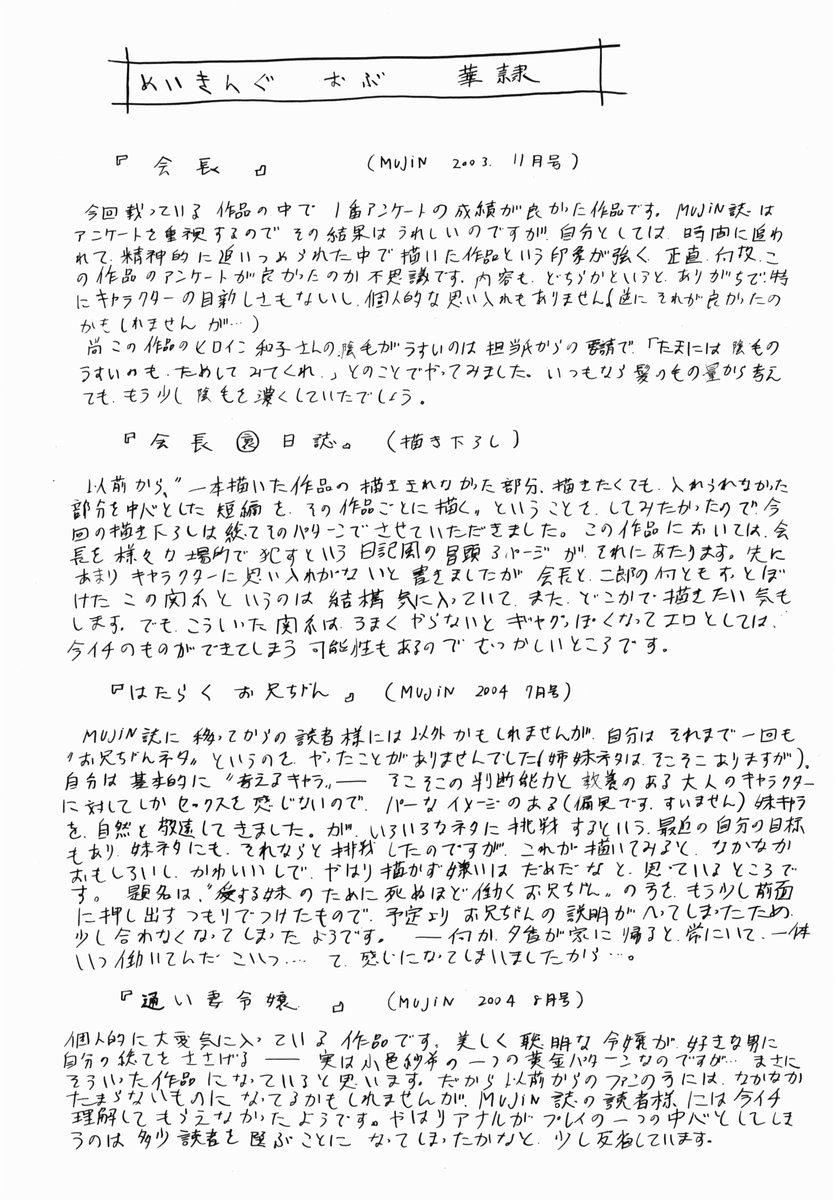 めいきんぐ おぶ 華隷
『 会長 』 (MUJIN 2003. 11月号)
今回載っている 作品の中で 1番アンケートの成績が良かった作品です。MUJIN誌は
アンケートを重視するので その結果はうれしいのですが、自分としては、時間に追わ
れて、精神的に追いつめられた中で描いた作品という印象が強く、正直、何故、こ
の作品のアンケートが良かったのか不思議です。内容も、どちらかというと、ありがちで、特
にキャラクターの目新しさもないし、個人的な思い入れもありません(逆に それが良かったの
かもしれません が…)
尚 この作品のヒロイン 和子さんの、陰毛がうすいのは 担当氏からの要請で、「たまには 陰毛の
うすいのも、ためして みてくれ。」とのことでやってみました。いつもなら髪の毛の量から考え
ても、もう少し 陰毛を濃くしていたでしょう。
『会長 ㊙ 日誌』 (描き下ろし)
以前から、〝一本描いた作品の 描ききれなかった部分、描きたくても、入れられなかった
部分を中心とした 短編を、その作品ごとに描く〟ということを、してみたかったので、今
回の描き下ろしは総てそのパターンでさせていただきました。この作品においては、会
長を 様々な場所で 犯すという 日記風の冒頭3ページ が、それにあたります。先に
あまり キャラクターに思い入れがないと 書きましたが 会長と、二郎の何ともすっとぼ
けた この関系と いうのは 結構 気に入っていて、また、どこかで、描きたい気も
します。でも、こういった 関系は、うまく やらないと ギャグっぽくなってエロとしては、
今イチのものができてしまう 可能性もあるので むつかしいところです。
『はたらく お兄ちゃん 』 (MUJIN 2004 7月号)
MUJIN誌に 移ってからの読者様には以外かもしれませんが、自分は それまで一回も
〝お兄ちゃんネタ〟というのを、やったことがありませんでした(姉妹ネタは、そこそこありますが)。
自分は 基本的に 〝考えるキャラ〟── そこそこの 判断能力と 教養のある 大人のキャラクター
に対してしか セックスを 感じないので、パーなイメージのある(偏見です、すいません)妹キャラ
を、自然と 敬遠してきました。が、いろいろなネタに 挑戦 するという、最近の自分の目標
もあり、妹ネタにも、それならと 挑戦 したのですが、これが描いてみると、なかなか
おもしろいし、かわいいしで、やはり 描かず嫌いは だめだなと、思っているところで
す。 題名は、〝愛する妹のために 死ぬほど働くお兄ちゃん〟の方を、もう少し前面
に押し出すつもりでつけたもので、予定より お兄ちゃんの 説明が へってしまったため、
少し合わなくなってしまった ようです。 ──何か、夕香が家に 帰ると、常にいて、一体
いつ 働いてんだ こいつ…… て、感じになってしまいましたから…。
『通い妻令嬢 』 (MUJIN 2004 8月号)
個人的に大変気に入っている 作品です。美しく 聡明な 令嬢が、好きな男に
自分の総てを ささげる ── 実は小邑紗希の一つの黄金パターンなのですが… まさに
そういった 作品に なっていると思います。だから 以前からのファンの方には、なかなか
たまらないものに なってるかもしれませんが、MUJIN 誌の読者様 には 今イチ
理解して もらえなかった ようです。やはり アナルが プレイの一つの中心としてしま
うのは 多少 読者を 選ぶことに なってしまったかなと、少し反省しています。